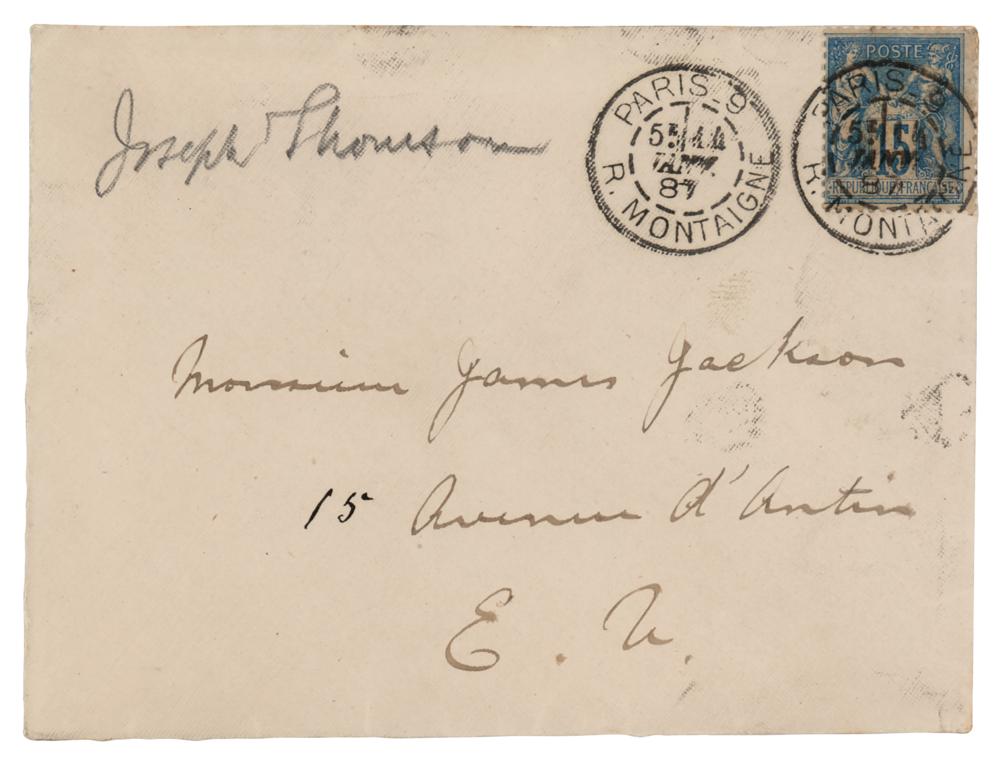 Joseph Thomson
PARIS_9
5E
JANV.
87
R. MONTAIGNE
POSTE
15
REPUBLIQUE FRANÇAISE
PARIS_9
R. MONTAIGNE
Monsieur James Jackson
15 Avenue d'Antin
E. V.